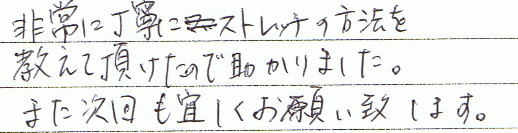 非常に丁寧にストレッチの方法を
教えて頂けたので助かりました。
また次回も宜しくお願い致します。